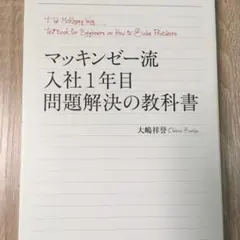 Textbook for Beginners on How to Solve Problems
マッキンゼー流
入社1年目
問題解決の教科書
大嶋祥誉